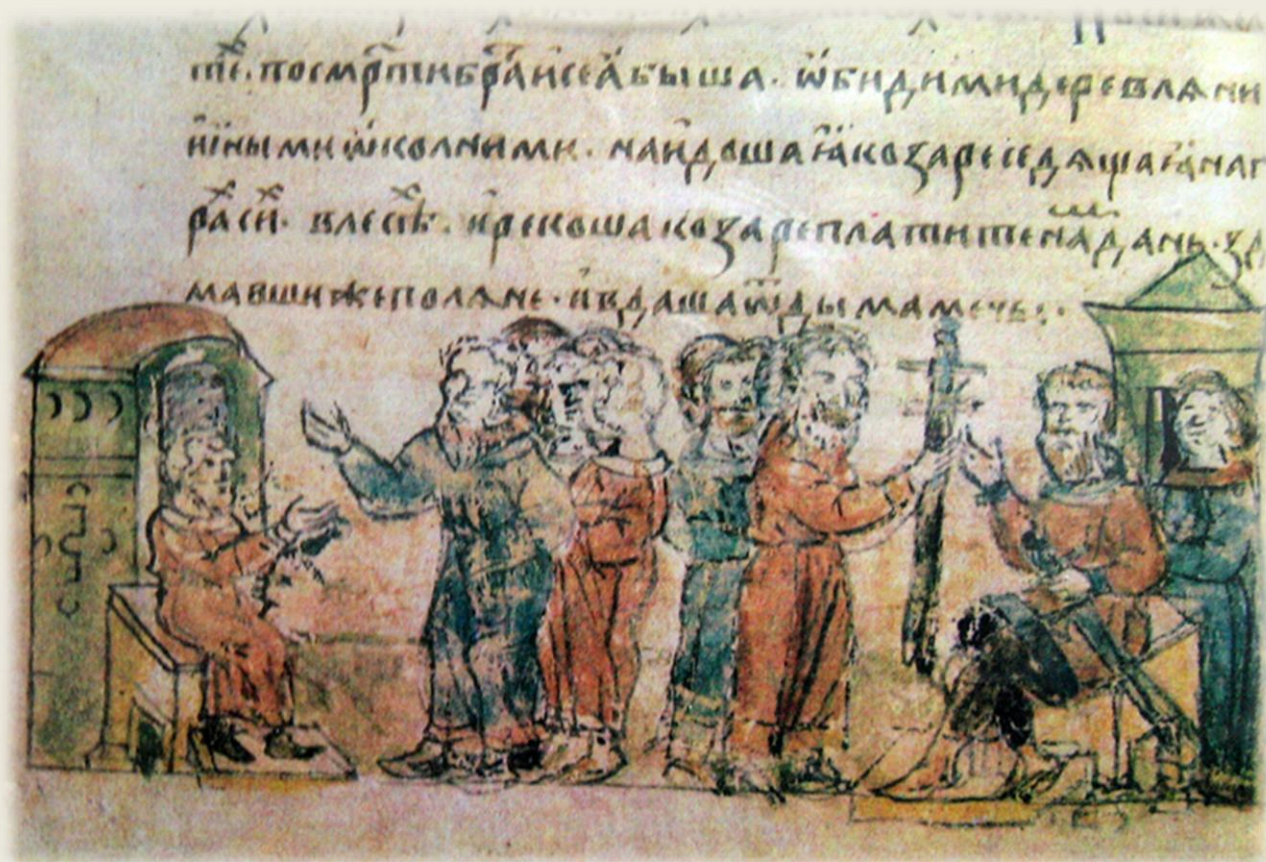 те х. посмр҃тибра҃исеѧ҃быша. ѿбидимидеревлѧни
и҆ны́мии҆ѡ҆колними. наидоша ꙗ҆козаре седѧщаꙗ҆наг
рас х и х. влесѣ х. и҆рекошакозареплатитенамдань. зд
мавшижеполѧне. и҆вдашаѿдымамечь:.